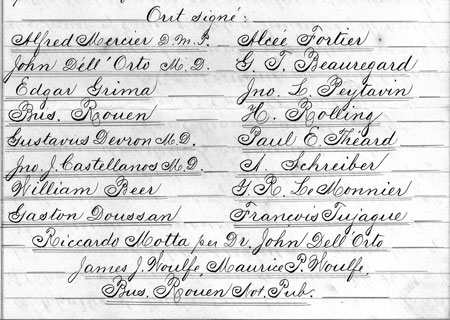 Ont signé:
Alfred Mercier D.m.P. Alcée Fortier
John Déll'Orto M.D. G. T. Beauregard
Edgar Grima Jno. L. Peytavin
Bus. Rouen H. Rolling
Gustavus Devron M.D. Paul E. Théard
Jno. J. Castellanos M.D. A. Schreiber
William Beer Y. R. Le Monnier
Gaston Doussan Francois Tujague
Riccardo Motta per Dr. John Dell'Orto
James J. Woulfe, Maurice P. Woulfe,
Bus. Rouen Not. Pub.